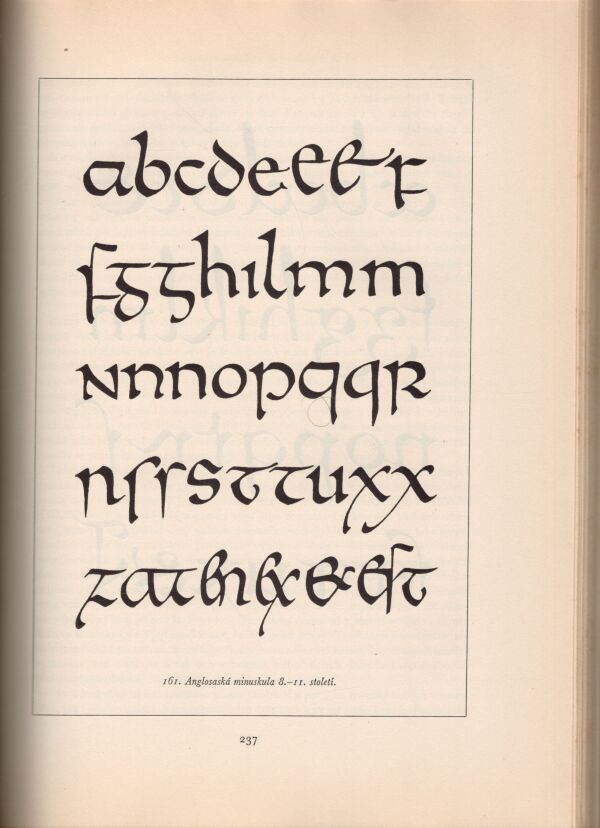 abcdeeeꝼ
fgghılmm
nnnnopqqR
nſrsττuxx
zatenex&eſt
161. Anglosaská minuskula 8.–11. století.
237